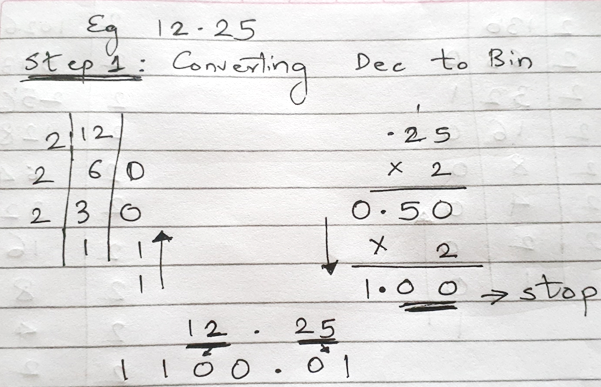 Eg 12.25
Step 1: Converting Dec to Bin
2 12
2 6 0
2 3 0
1 1
1
1
.25
× 2
0.50
× 2
1.00 → stop
12 . 25
1 1 0 0 . 0 1